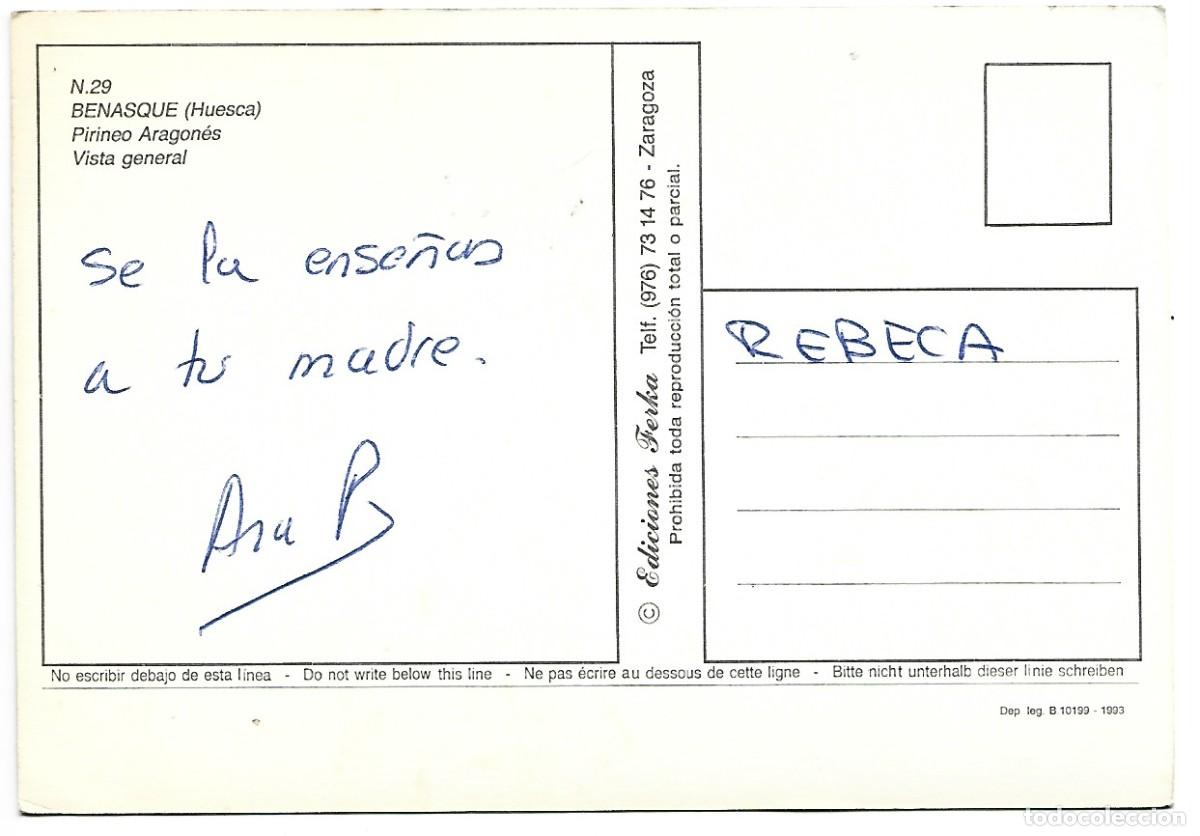 N.29
BENASQUE (Huesca)
Pirineo Aragonés
Vista general
se la enseñas
a tu madre.
Ana P
© Ediciones Ferka Telf. (976) 73 14 76 - Zaragoza
Prohibida toda reproducción total o parcial.
REBECA
No escribir debajo de esta línea - Do not write below this line - Ne pas écrire au dessous de cette ligne - Bitte nicht unterhalb dieser linie schreiben
Dep. leg. B 10199 - 1993
todocoleccion